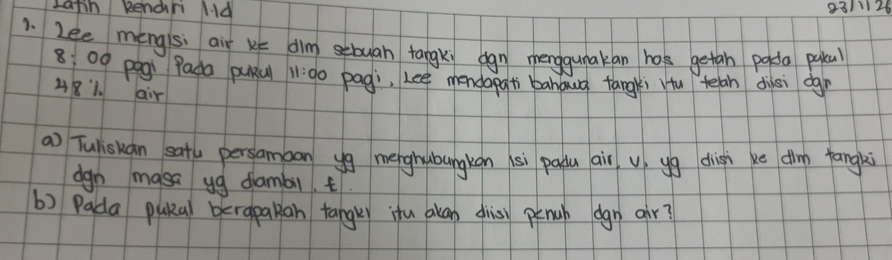 Latih kendiri 1.1d 23/1/26
2. Lee mengisi air ke dlm sebuah tangki dgn menggunakan hos getah pada pukul
8:00 pagi. Pada pukul 11:00 pagi, Lee mendapati bahawa tangki itu telah diisi dgn
48% air
a) Tuliskan satu persamaan yg menghubungkan isi padu air, V, yg diisi ke dlm tangki
dgn masa yg diambil, t.
b) Pada pukul berapakah tangki itu akan diisi penuh dgn air?